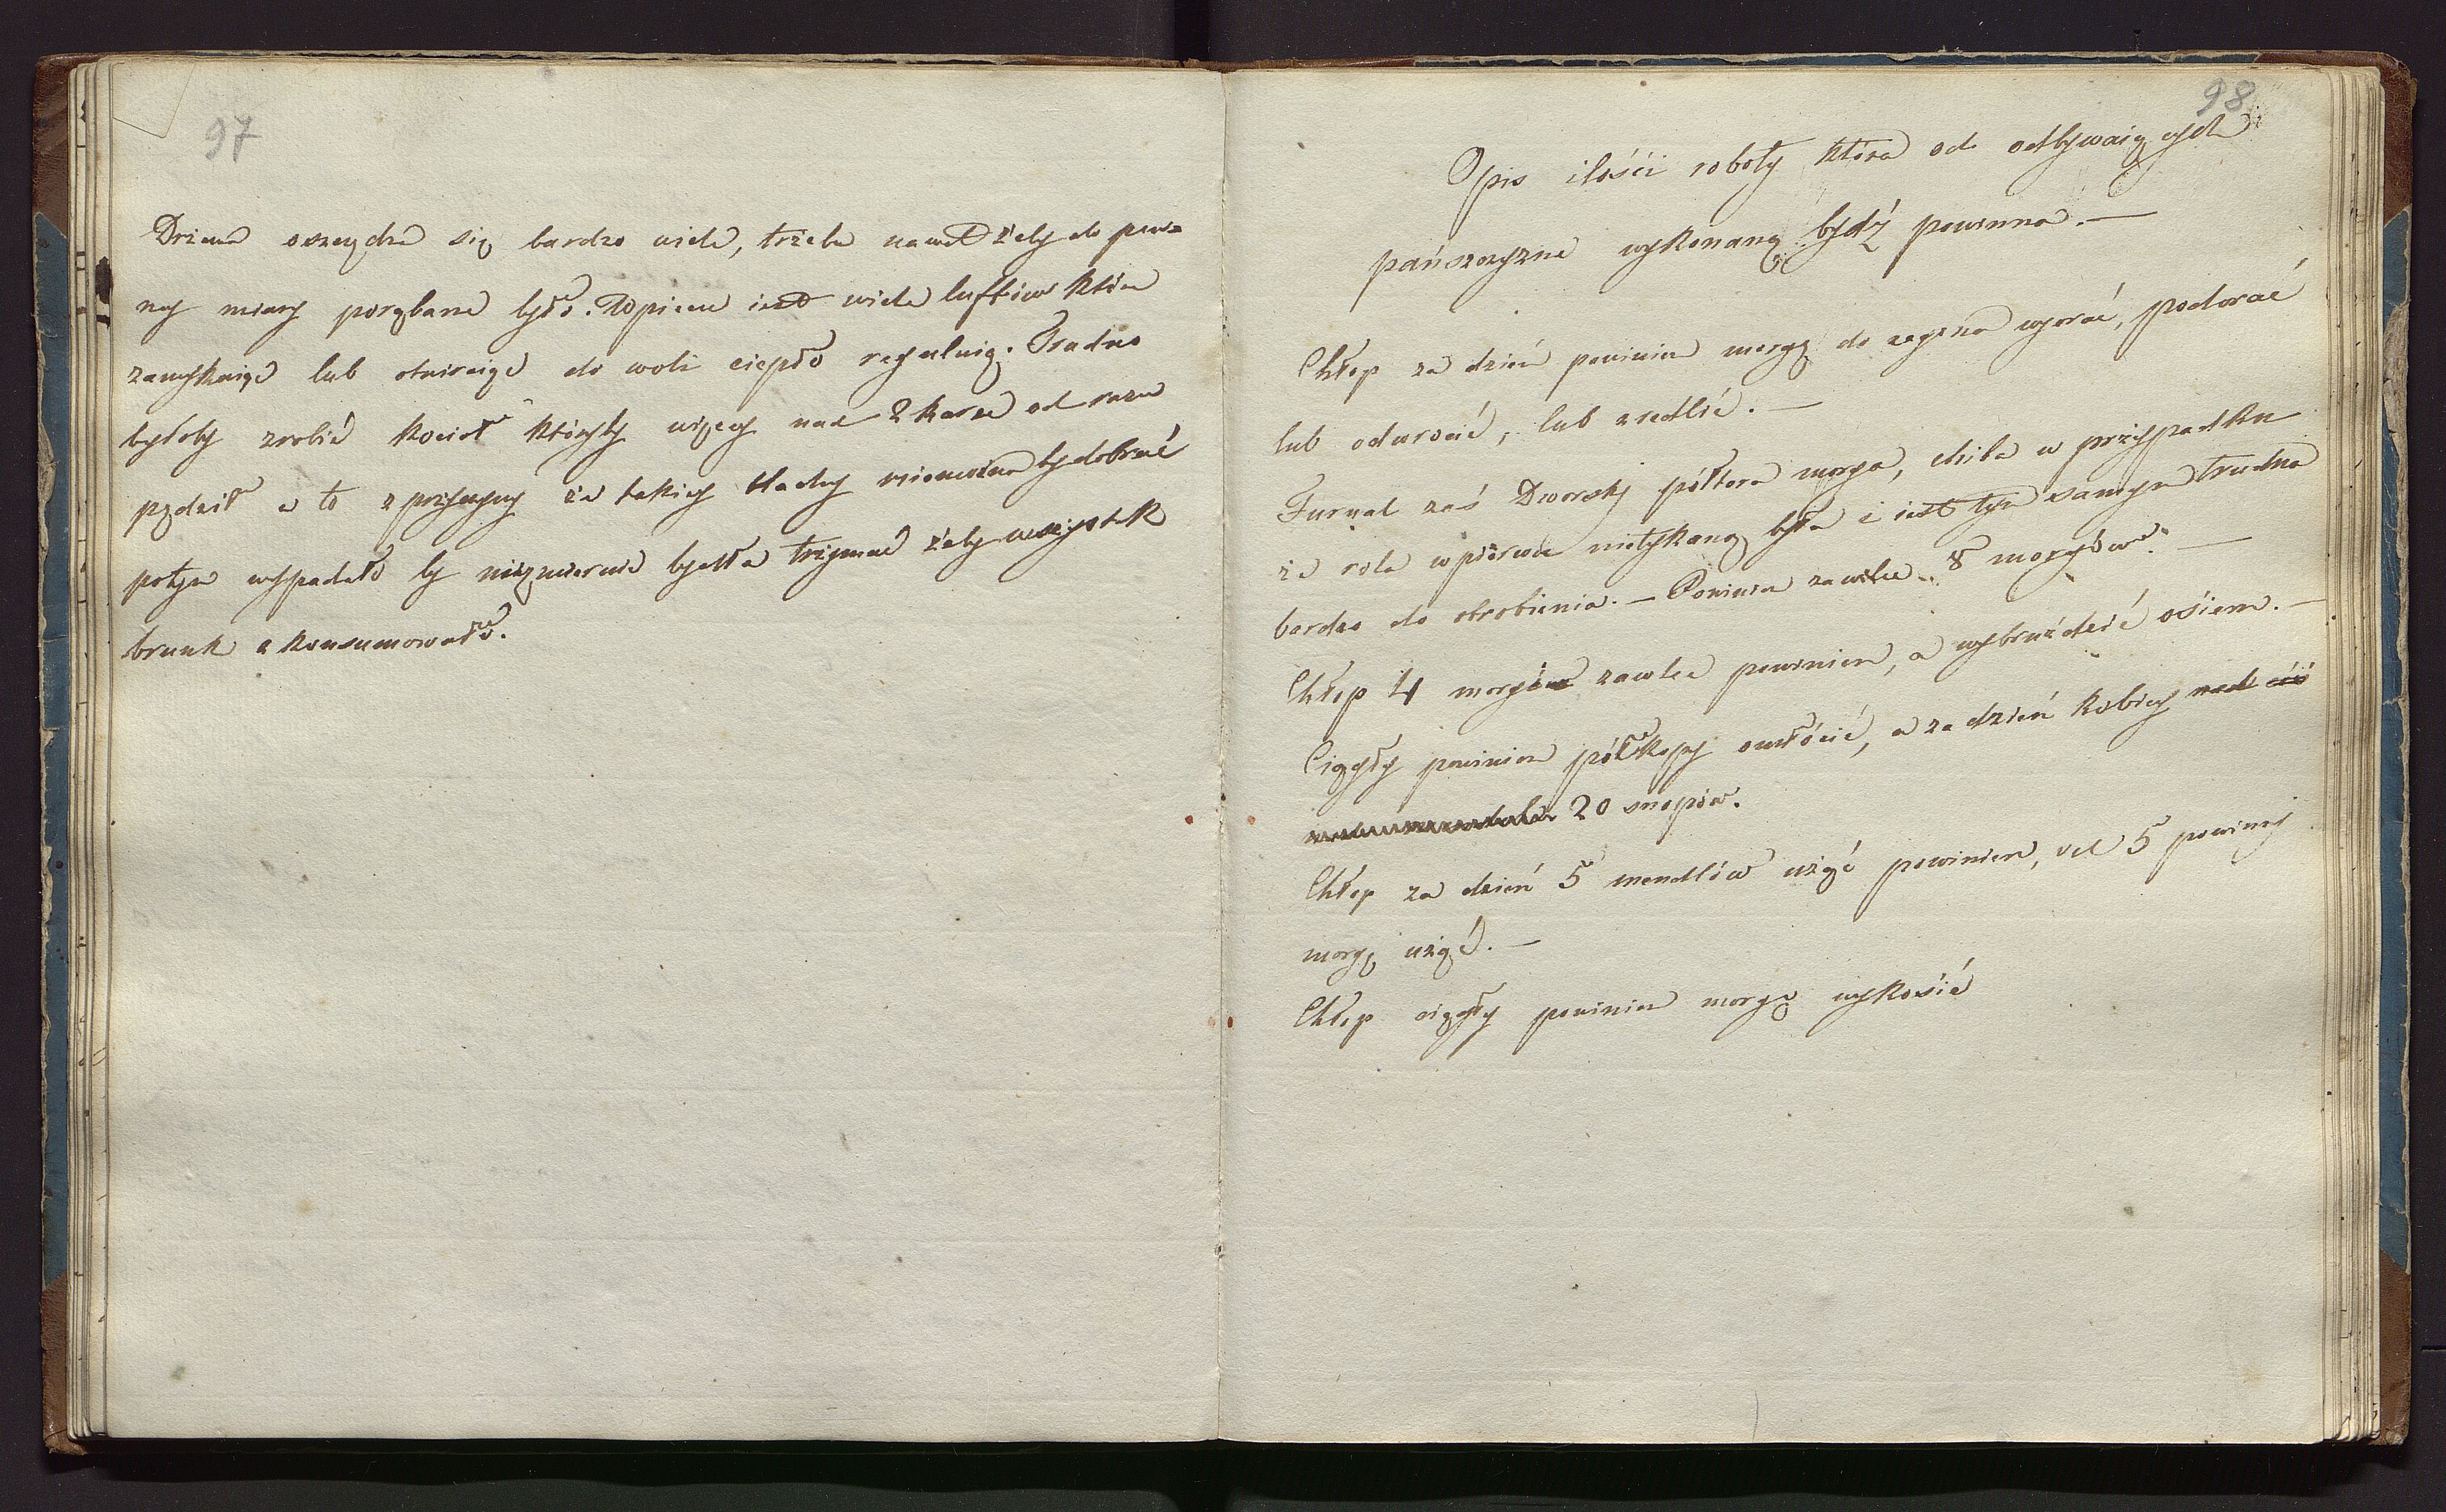 97
Drzewa oszczędza się bardzo wiele, trzeba nawet żeby do pew=
ney miary porąbane było. W piecu iest wiele luftów które
zamykaiąc lub otwieraiąc do woli ciepło reguluią. Trudno
byłoby zrobić kocioł któryby więcey nad 2 Karze od razu
pędził a to z przyczyny że takiey blachy niemożna by dobrać
potym wypadało by niezmiernie bydła trzymać żeby wszystek
brauk a konsumowało.
98
Opis ilości roboty która od odbywaiących
pańszczyzne wykonaną bydź powinna. —
Chłop za dzień powinien morgę do zagona wyorać, podorać
lub odwrócić, lub zredlić. —
Furnal zaś Dworski półtora morga, chiba w przypadku
że rola wpiérwei nietykaną była i iest tym samym trudna
bardzo do obrobienia. — Powinien zawlec 8 morgów. —
Chłop 4 morgów zawlec powinien, a wybruździć ośiem. —
Ciągły powinien półkopy omłócić, a za dzień kobiecy
20 snopów.
Chłop za dzień 5 mendlów użąć powinien, vel 5 powinny
morgę użąć. —
Chłop ciągły powinien morgę wykosić